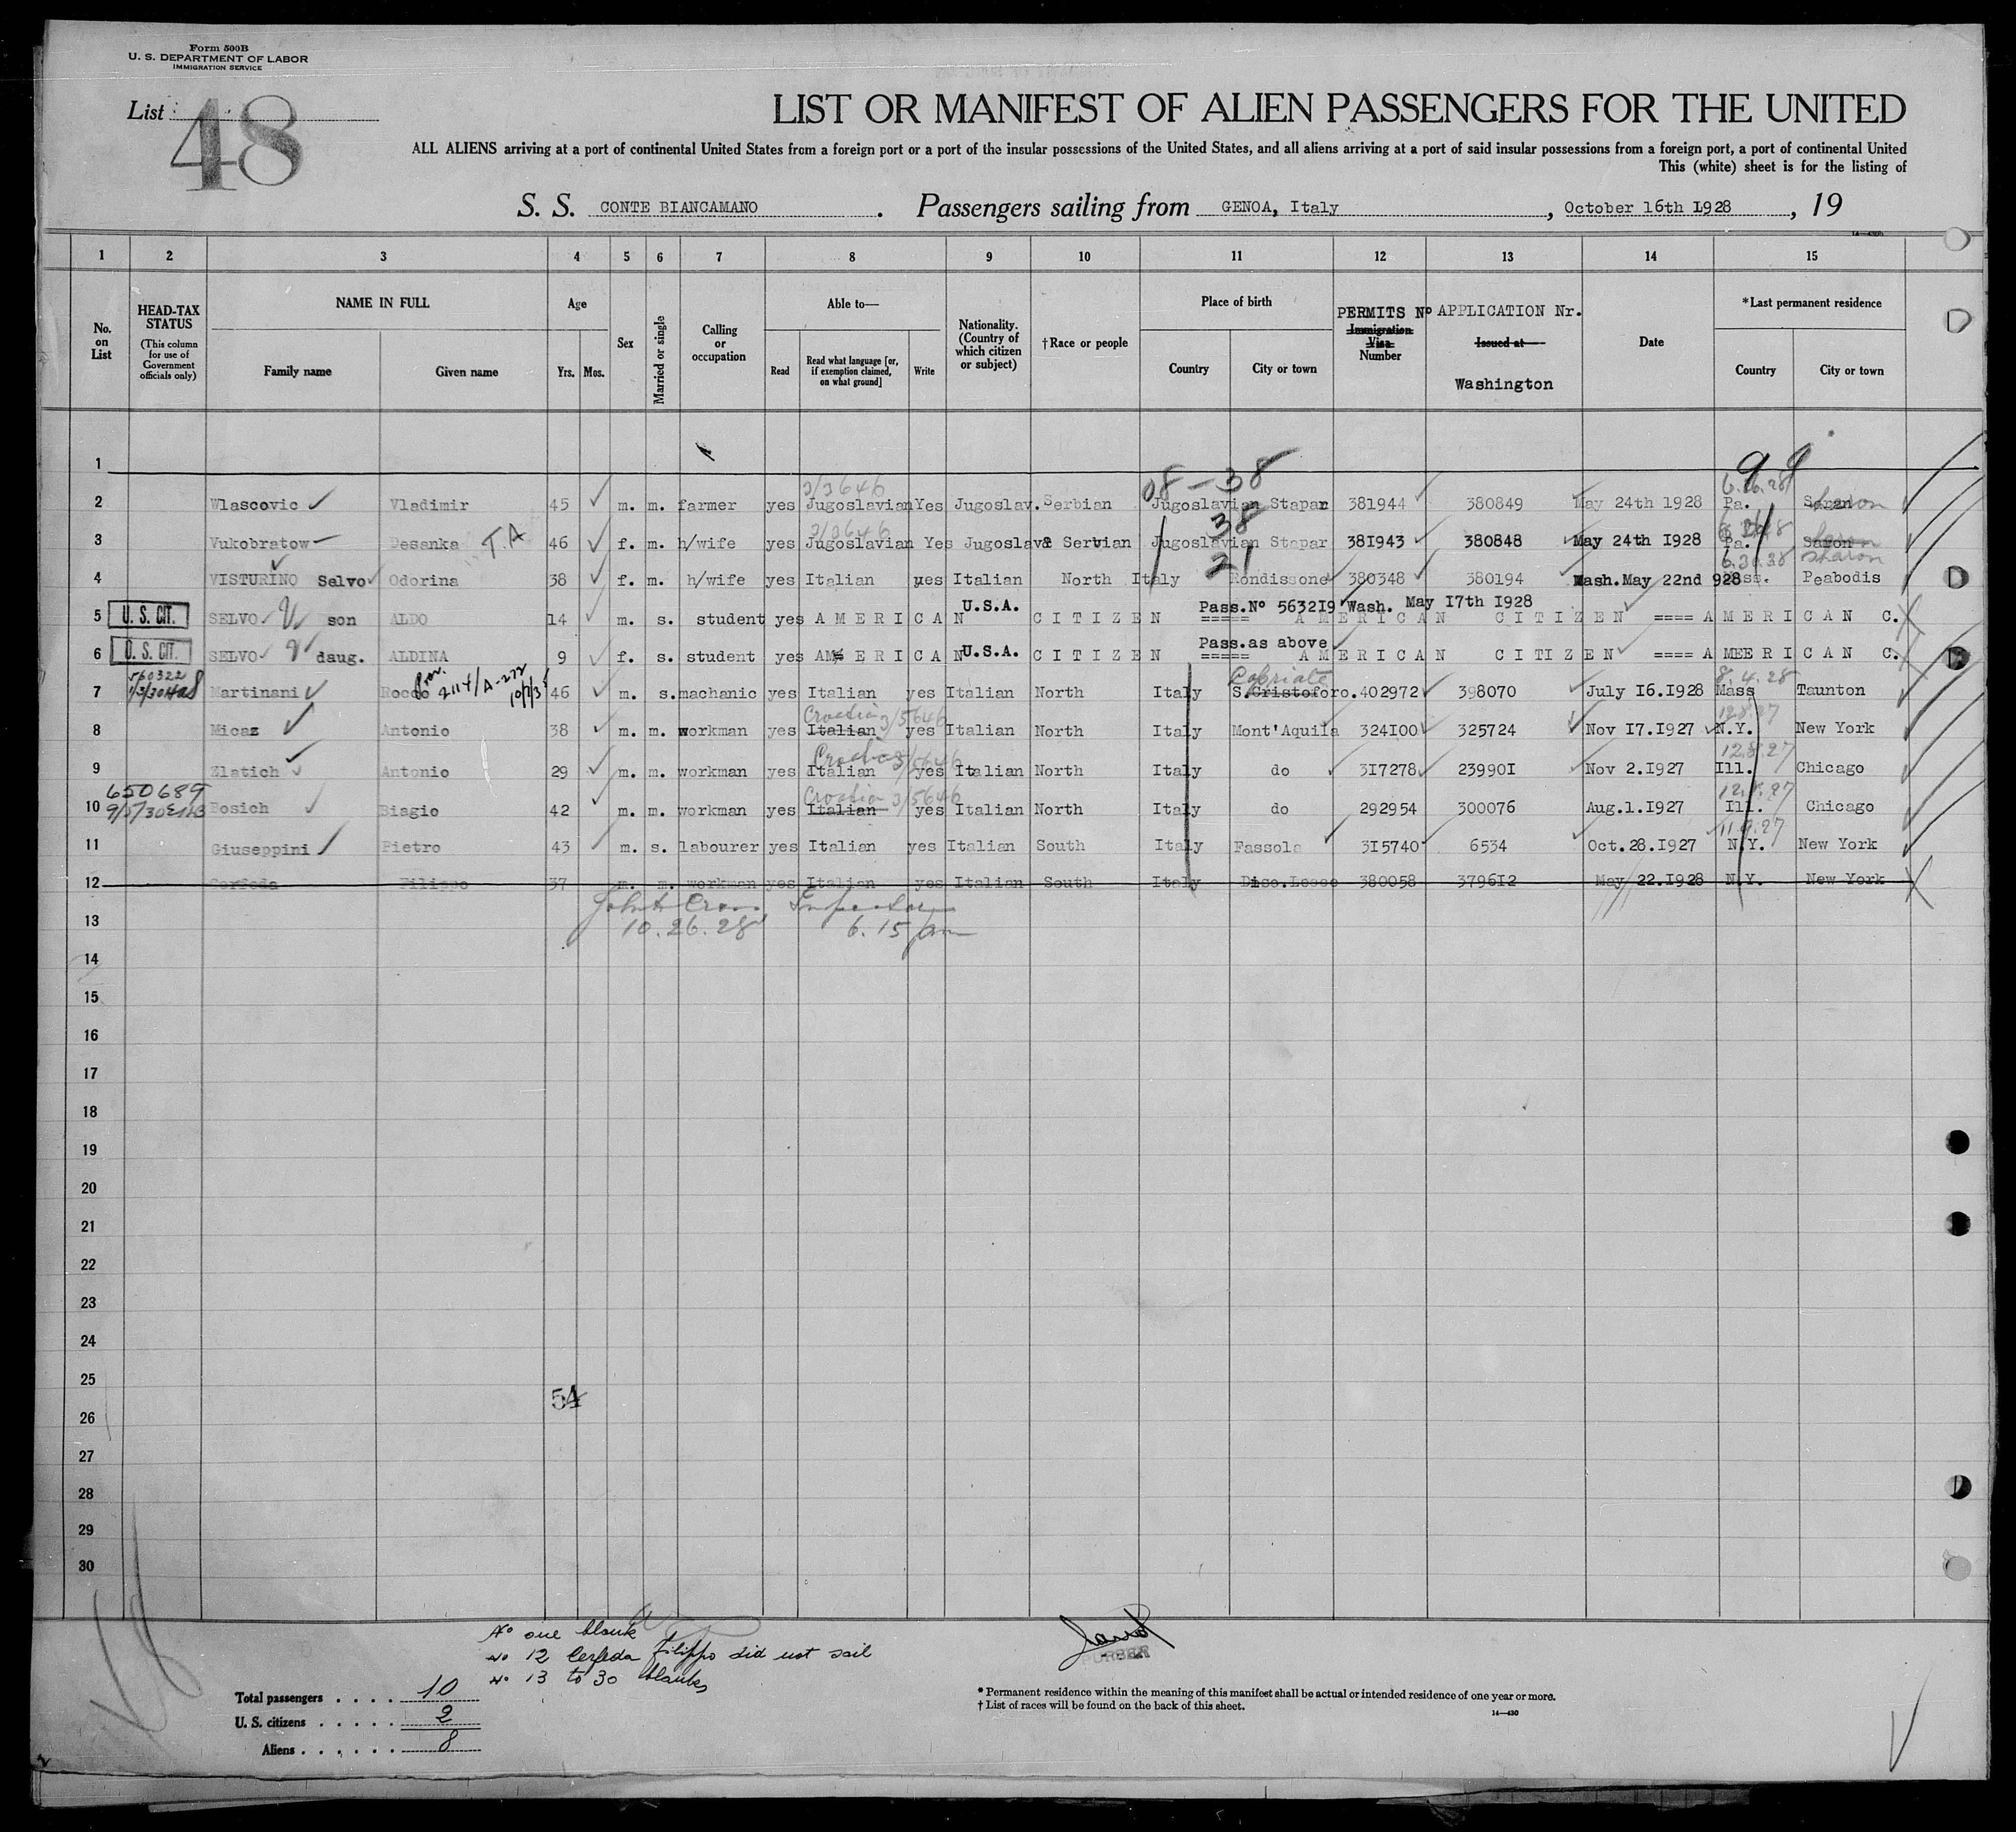 Form 500B
U. S. DEPARTMENT OF LABOR
IMMIGRATION SERVICE
List 48
LIST OR MANIFEST OF ALIEN PASSENGERS FOR THE UNITED
ALL ALIENS arriving at a port of continental United States from a foreign port or a port of the insular possessions of the United States, and all aliens arriving at a port of said insular possessions from a foreign port, a port of continental United
This (white) sheet is for the listing of
S. S. CONTE BIANCAMANO . Passengers sailing from GENOA, Italy , October 16th 1928 , 19
1 2 3 4 5 6 7 8 9 10 11 12 13 14 15
No. on List
HEAD-TAX STATUS
(This column for use of Government officials only)
NAME IN FULL
Family name Given name
Age
Yrs. Mos.
Sex
Married or single
Calling or occupation
Able to—
Read
Read what language [or, if exemption claimed, on what ground]
Write
Nationality. (Country of which citizen or subject)
†Race or people
Place of birth
Country City or town
PERMITS Nº
Immigration Visa Number
APPLICATION Nr.
Issued at
Washington
Date
*Last permanent residence
Country City or town
1
08-38 99
3/3646 6.26.28
2 Wlascovic Vladimir 45 m. m. farmer yes Jugoslavian Yes Jugoslav. Serbian Jugoslavian Stapar 381944 380849 May 24th 1928 Pa. Saran Sharon
3/3646 38
3 Vukobratow Desanka T.A 46 f. m. h/wife yes Jugoslavian Yes Jugoslav Servian Jugoslavian Stapar 381943 380848 May 24th 1928 Pa. Saron Sharon
21
4 VISTURINO Selvo Odorina 38 f. m. h/wife yes Italian yes Italian North Italy Rondissone 380348 380194 Wash.May 22nd 928 Mass. Peabodis
U.S.A. Pass.Nº 563219 Wash. May 17th 1928
5 U. S. CIT. SELVO son ALDO 14 m. s. student yes AMERICAN CITIZEN ===== AMERICAN CITIZEN ==== AMERICAN C.
U.S.A. Pass.as above
6 U. S. CIT. SELVO daug. ALDINA 9 f. s. student yes AMERICAN CITIZEN ===== AMERICAN CITIZEN ==== AMEERICAN C.
560322 Capriate 8.4.28
7 Martinani Rocco 46 m. s. machanic yes Italian yes Italian North Italy S.Cristoforo. 402972 398070 July 16.1928 Mass Taunton
Croatian 3/5646 12.8.27
8 Micaz Antonio 38 m. m. workman yes Italian yes Italian North Italy Mont'Aquila 324100 325724 Nov 17.1927 N.Y. New York
Croatian 3/5646 12.8.27
9 Zlatich Antonio 29 m. m. workman yes Italian yes Italian North Italy do 317278 239901 Nov 2.1927 Ill. Chicago
650689 Croatian 3/5646
10 Bosich Biagio 42 m. m. workman yes Italian yes Italian North Italy do 292954 300076 Aug.1.1927 Ill. Chicago
11 Giuseppini Pietro 43 m. s. labourer yes Italian yes Italian South Italy Fassola 315740 6534 Oct.28.1927 N.Y. New York
12 Cerfeda Filippo 37 m. m. workman yes Italian yes Italian South Italy Diso.Lecce 380058 379612 May 22.1928 N.Y. New York
Inspector
13 10.26.28 6.15 pm
14
15
16
17
18
19
20
21
22
23
24
25
54
26
27
28
29
30
No one blank
No 12 Cerfeda Filippo did not sail
No 13 to 30 blanks
PURSER
Total passengers . . . . 10
U. S. citizens . . . . . 2
Aliens . . . . . . 8
* Permanent residence within the meaning of this manifest shall be actual or intended residence of one year or more.
† List of races will be found on the back of this sheet.
14—430